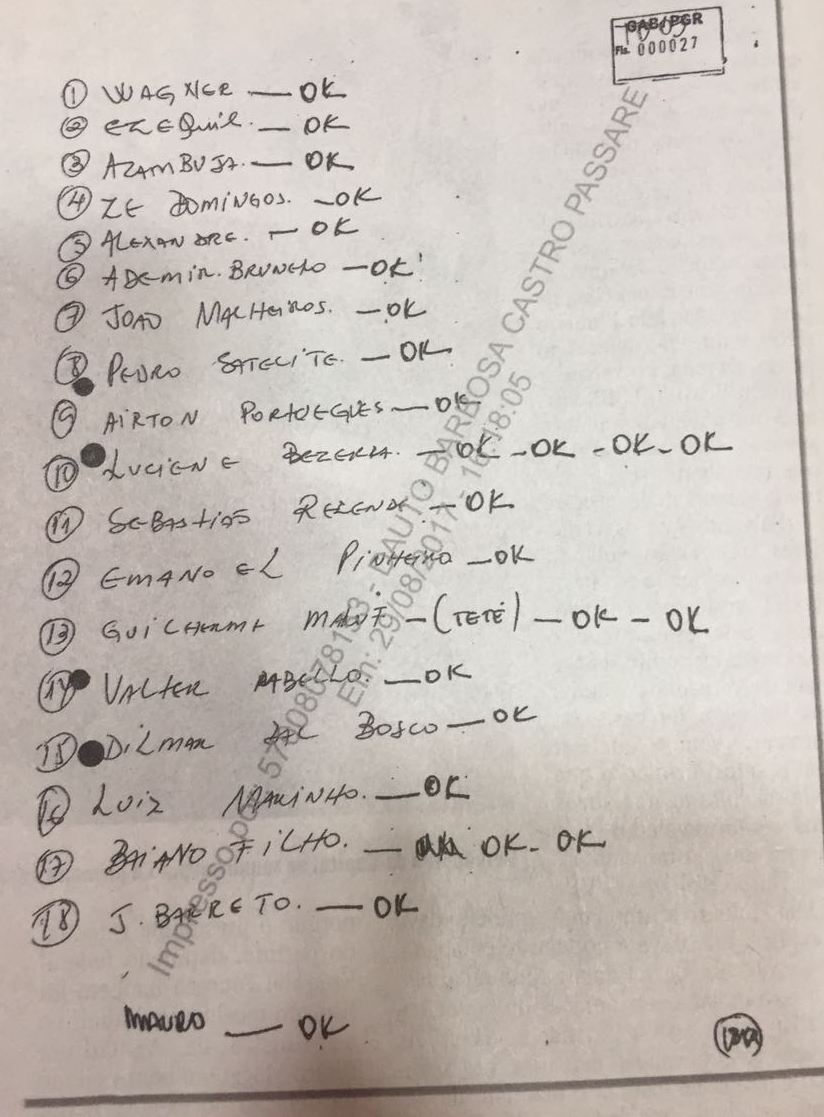 GAB/PGR
Fls. 000027
① WAGNER — OK
② EZEQUIEL. — OK
③ AZAMBUJA. — OK
④ ZE DOMINGOS. — OK
⑤ ALEXANDRE. — OK
⑥ ADEMIR. BRUNETO — OK
⑦ JOAO MALHEIROS. — OK
⑧ PEDRO SATELITE. — OK
⑨ AIRTON PORTUEGUES — OK
⑩ LUCIENE BEZERRA. — OK - OK - OK - OK
⑪ SEBASTIÃO REZENDE — OK
⑫ EMANOEL PINHEIRO — OK
⑬ GUILHERME MALUF — (TETÉ) — OK - OK
⑭ VALTER RABELLO. — OK
⑮ DILMAR DAL BOSCO — OK
⑯ LUIZ MARINHO. — OK
⑰ BAIANO FILHO. — OK - OK
⑱ J. BARRETO. — OK
MAURO — OK
Impresso por: 578.080.781-53 - DAUTO BARBOSA CASTRO PASSARE
Em: 29/08/2017 - 16:18:05